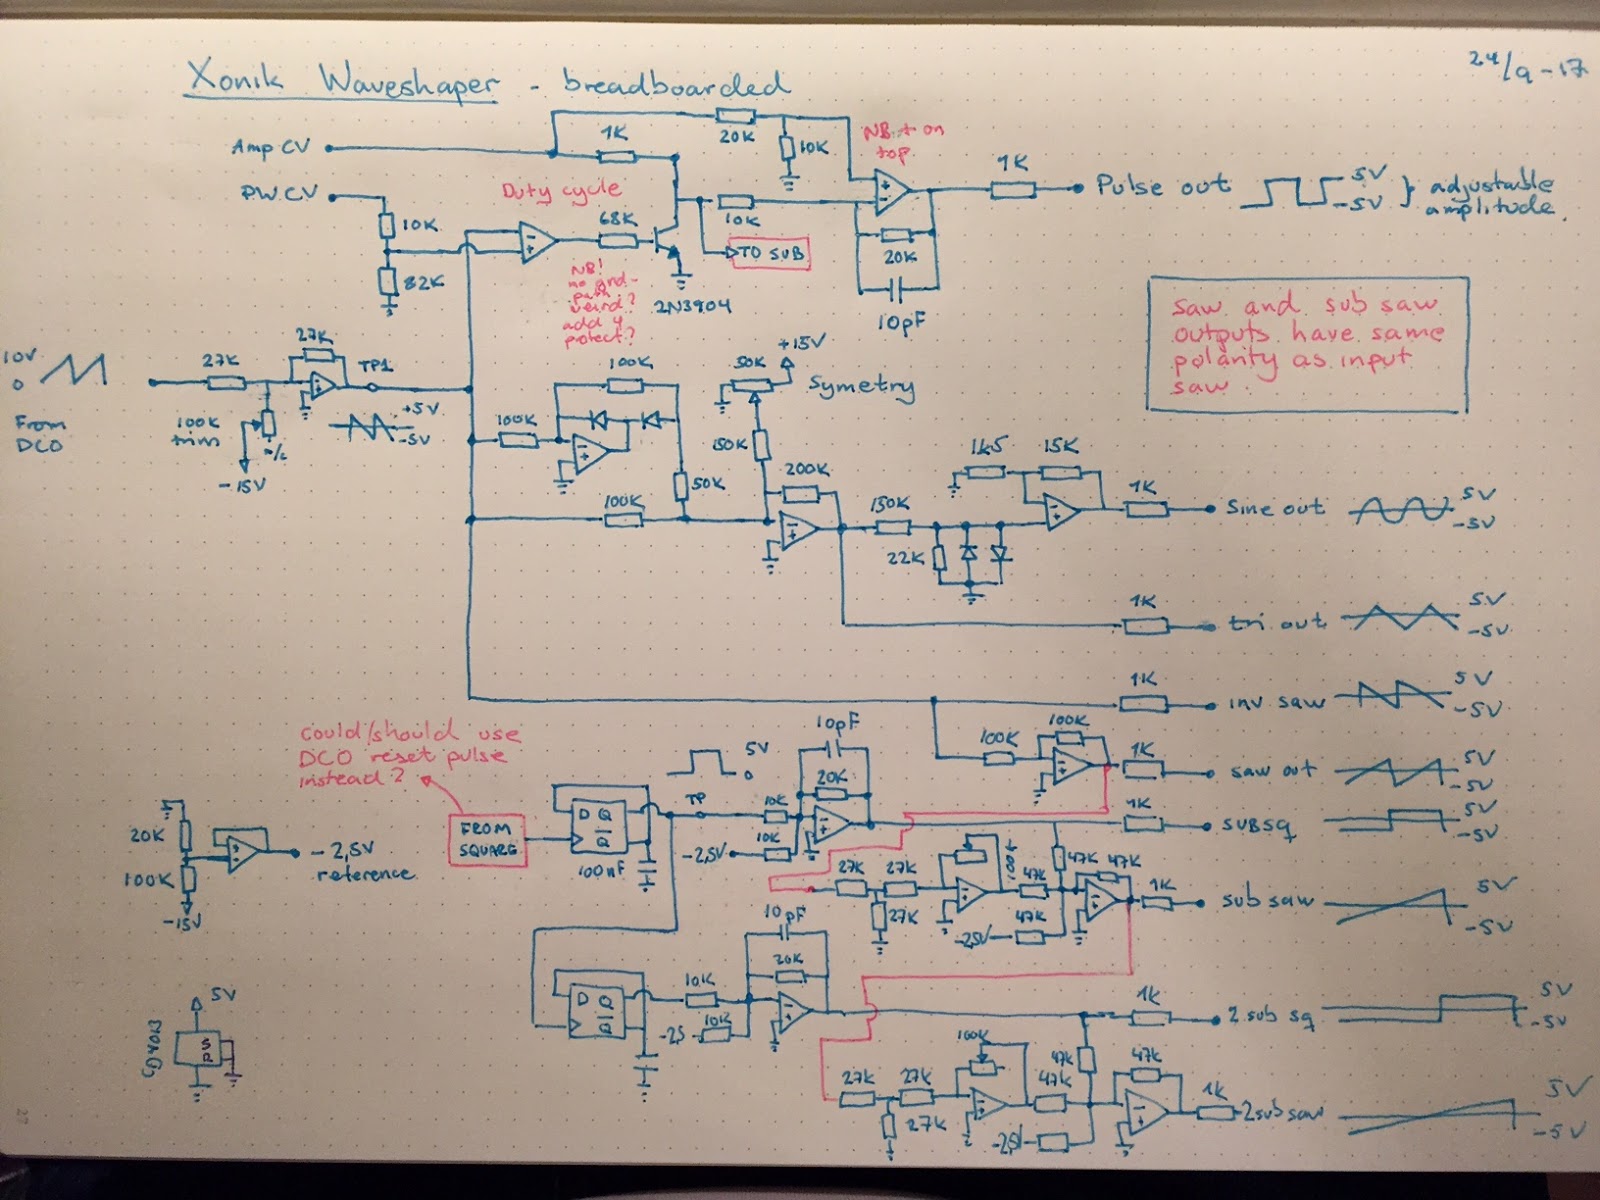 Xonik Waveshaper - breadboarded
24/9-17
Amp CV
1K
20K
10K
NB + on
top.
1K
Pulse out
5V
-5V
adjustable
amplitude.
PW CV
Duty cycle
10K
68K
10K
82K
TO SUB
20K
NB!
no gnd-
path
weird?
add
protect?
2N3904
10pF
Saw and sub saw
outputs have same
polarity as input
saw.
10V
0
27K
27K
TP1
+5V
-5V
From
DCO
100K
trim
-15V
100K
100K
50K
+15V
Symetry
150K
50K
200K
100K
150K
22K
1k5
15K
1K
Sine out
5V
-5V
1K
tri out
5V
-5V
1K
inv saw
5V
-5V
could/should use
DCO reset pulse
instead?
5V
0
10pF
100K
100K
1K
saw out
5V
-5V
20K
100K
-15V
-2,5V
reference
FROM
SQUARE
D Q
Q
100nF
TP
10K
10K
20K
-2,5V
1K
subsq
5V
-5V
27K
27K
27K
100K
47K
47K
47K
47K
-2,5V
1K
sub saw
5V
-5V
10pF
20K
D Q
Q
10K
10K
-2,5
1K
2 sub sq
5V
-5V
27K
27K
27K
100K
47K
47K
47K
-2,5V
1K
2sub saw
5V
-5V
5V
CD4013
S
R